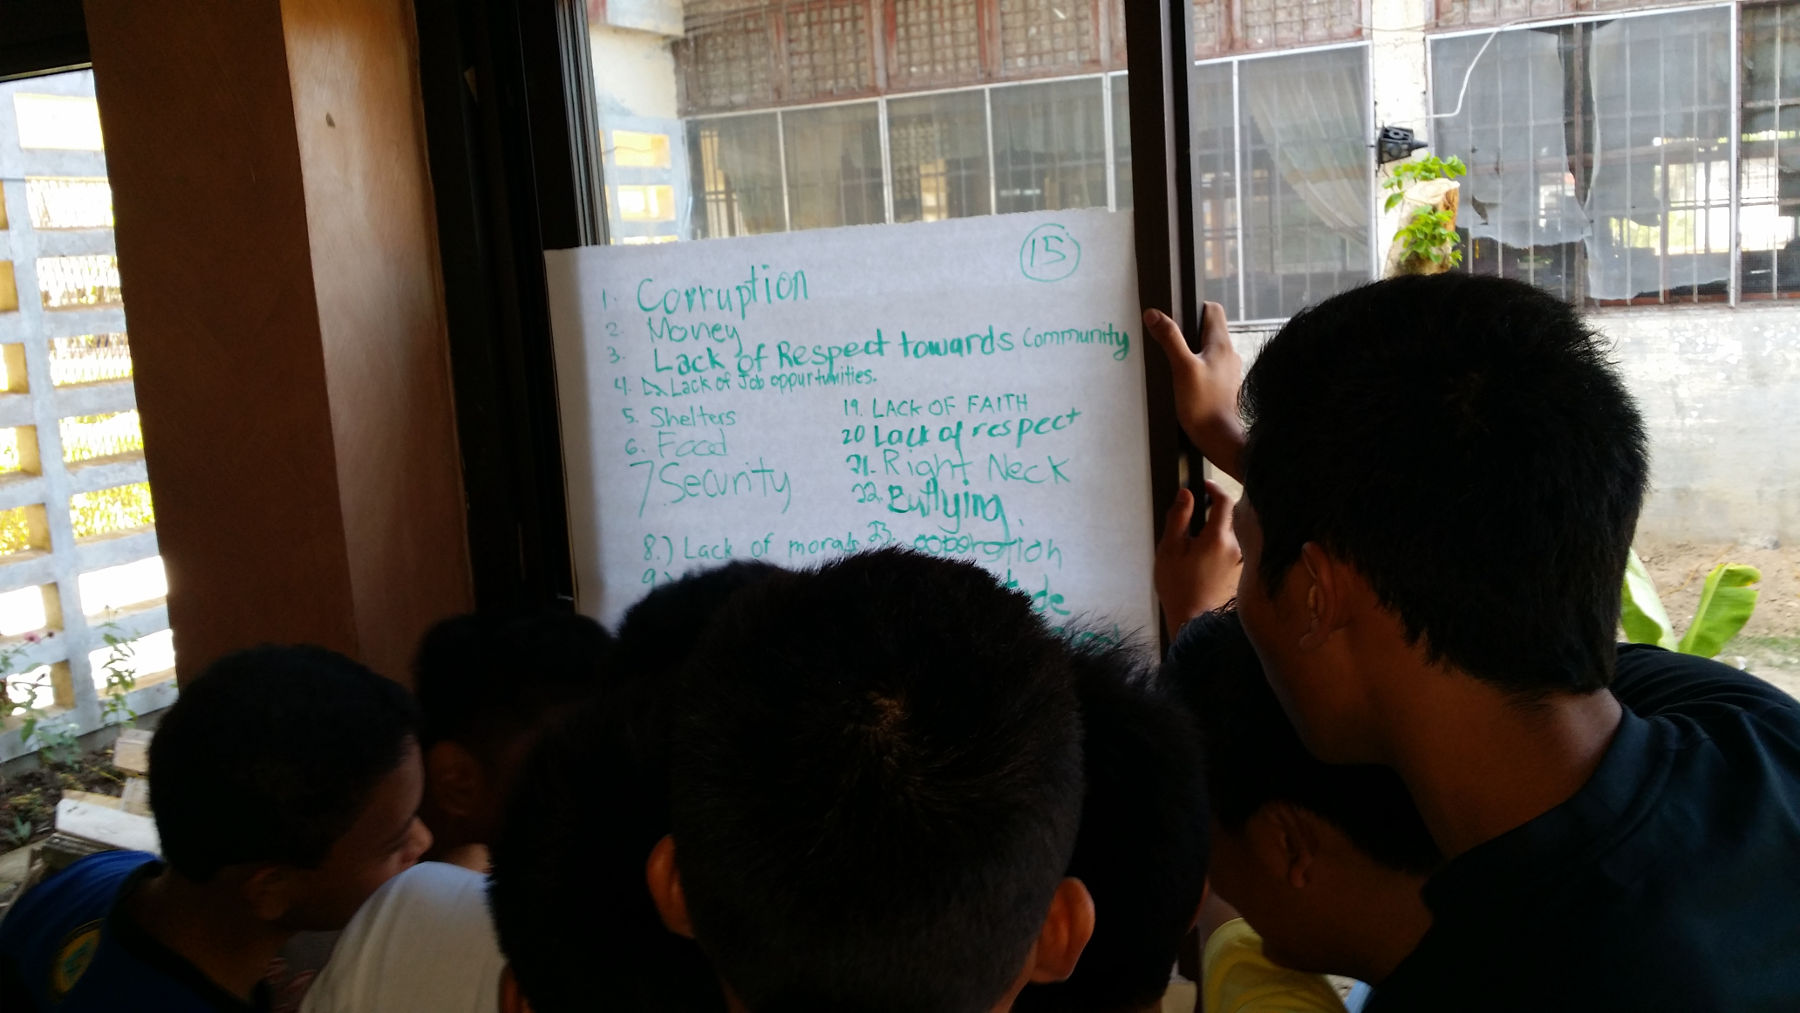 15
1. Corruption
2. Money
3. Lack of Respect towards Community
4. Lack of Job oppurtunities.
5. Shelters
6. Food
7 Security
8.) Lack of morals
9.)
19. LACK OF FAITH
20 Lack of respect
21. Right Neck
22. Bullying.
23. cooperation